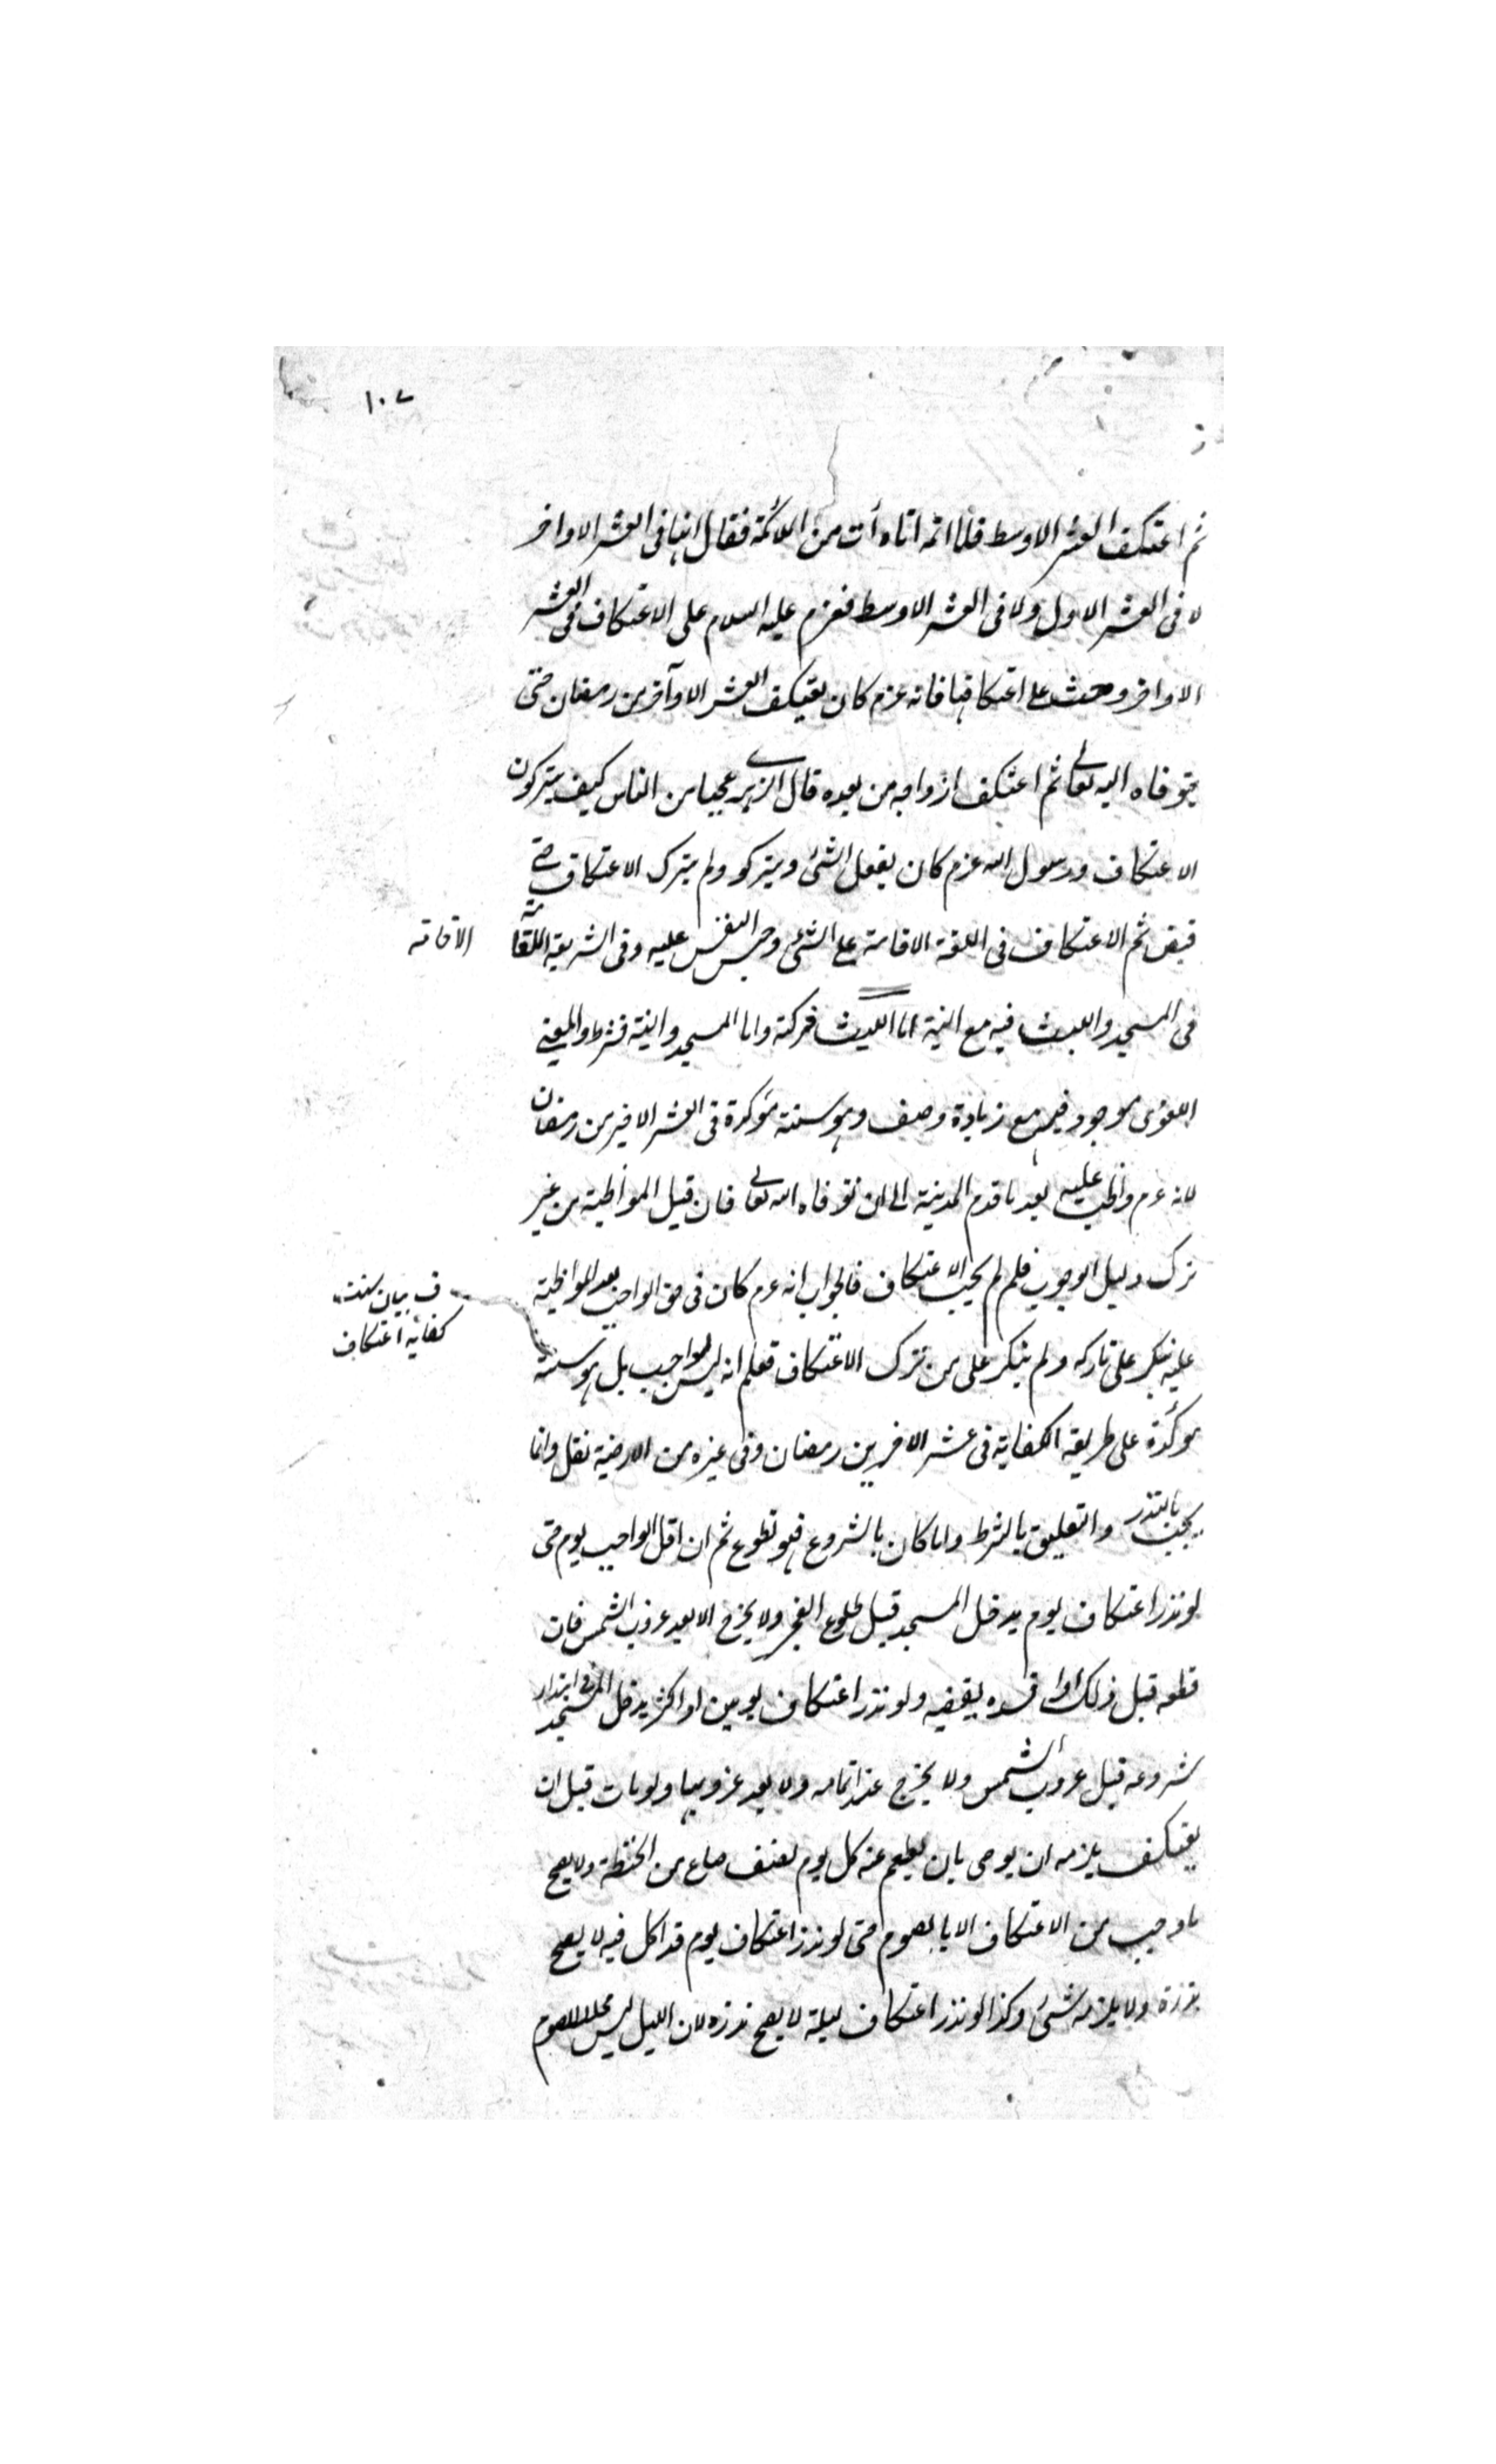 ١٠٧
ثم اعتكف العشر الاوسط فلما اتمه اتاه أت من الملائكة فقال انها فى العشر الاواخر
لا فى العشر الاول ولا فى العشر الاوسط فعزم عليه السلام على الاعتكاف فى العشر
الاواخر وحث على اعتكافها فانه عزم كان يعتكف العشر الاواخر من رمضان حتى
يتوفاه اليه تعالى ثم اعتكف ازواجه من بعده قال الزهرى عجبا من الناس كيف يتركون
الاعتكاف ورسول الله عزم كان يفعل الشئ ويتركو ولم يترك الاعتكاف حتى
قبض ثم الاعتكاف فى اللغة الاقامة على الشئ وحبس النفس عليه وفى الشريعة
الاقامة
فى المسجد واللبث فيه مع النية اما اللبث فركنه واما المسجد والنية فشرط والمعنى
اللغوى موجود فيه مع زيادة وصف وهو سنة مؤكدة فى العشر الاخير من رمضان
لانه عزم واظب عليه بعد ما قدم المدينة الى ان توفاه الله تعالى فان قيل المواظبة من غير
ترك دليل الوجوب فلم لم يجب الاعتكاف فالجواب انه عزم كان فى حق الواجب بعد المواظبة
ف بيان سنت
كفايه اعتكاف
عليه ينكر على تاركه ولم ينكر على من ترك الاعتكاف فعلم انه ليس بواجب بل هو سنة
مؤكدة على طريقة الكفاية فى عشر الاخر من رمضان وفى غيره من الازمنة نفل وانما
يجب بالنذر والتعليق بالشرط واما كان بالشروع فهو تطوع ثم ان اقل الواجب يوم حتى
لو نذر اعتكاف يوم يدخل المسجد قبل طلوع الفجر ولا يخرج الا بعد غروب الشمس فان
قطعه قبل ذلك او افسده يقضيه ولو نذر اعتكاف يومين او اكثر يدخل المسجد فى ابتداء
شروعه قبل غروب الشمس ولا يخرج عند اتمامه ولا بعد غروبها ولو مات قبل ان
يعتكف يلزمه ان يوصى بان يطعم عنه كل يوم نصف صاع من الحنطة ولا يصح
ما وجب من الاعتكاف الا بالصوم حتى لو نذر اعتكاف يوم قد اكل فيه لا يصح
نذره ولا يلزمه شئ وكذا لو نذر اعتكاف ليلة لا يصح نذره لان الليل ليس محلا للصوم